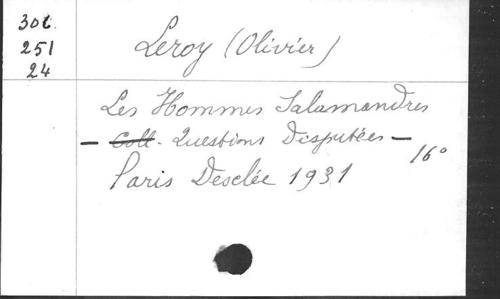 30C.
251
24
Leroy (Olivier)
Les Hommes Salamandres
— Coll. Questions Disputées —
16°
Paris Desclée 1931